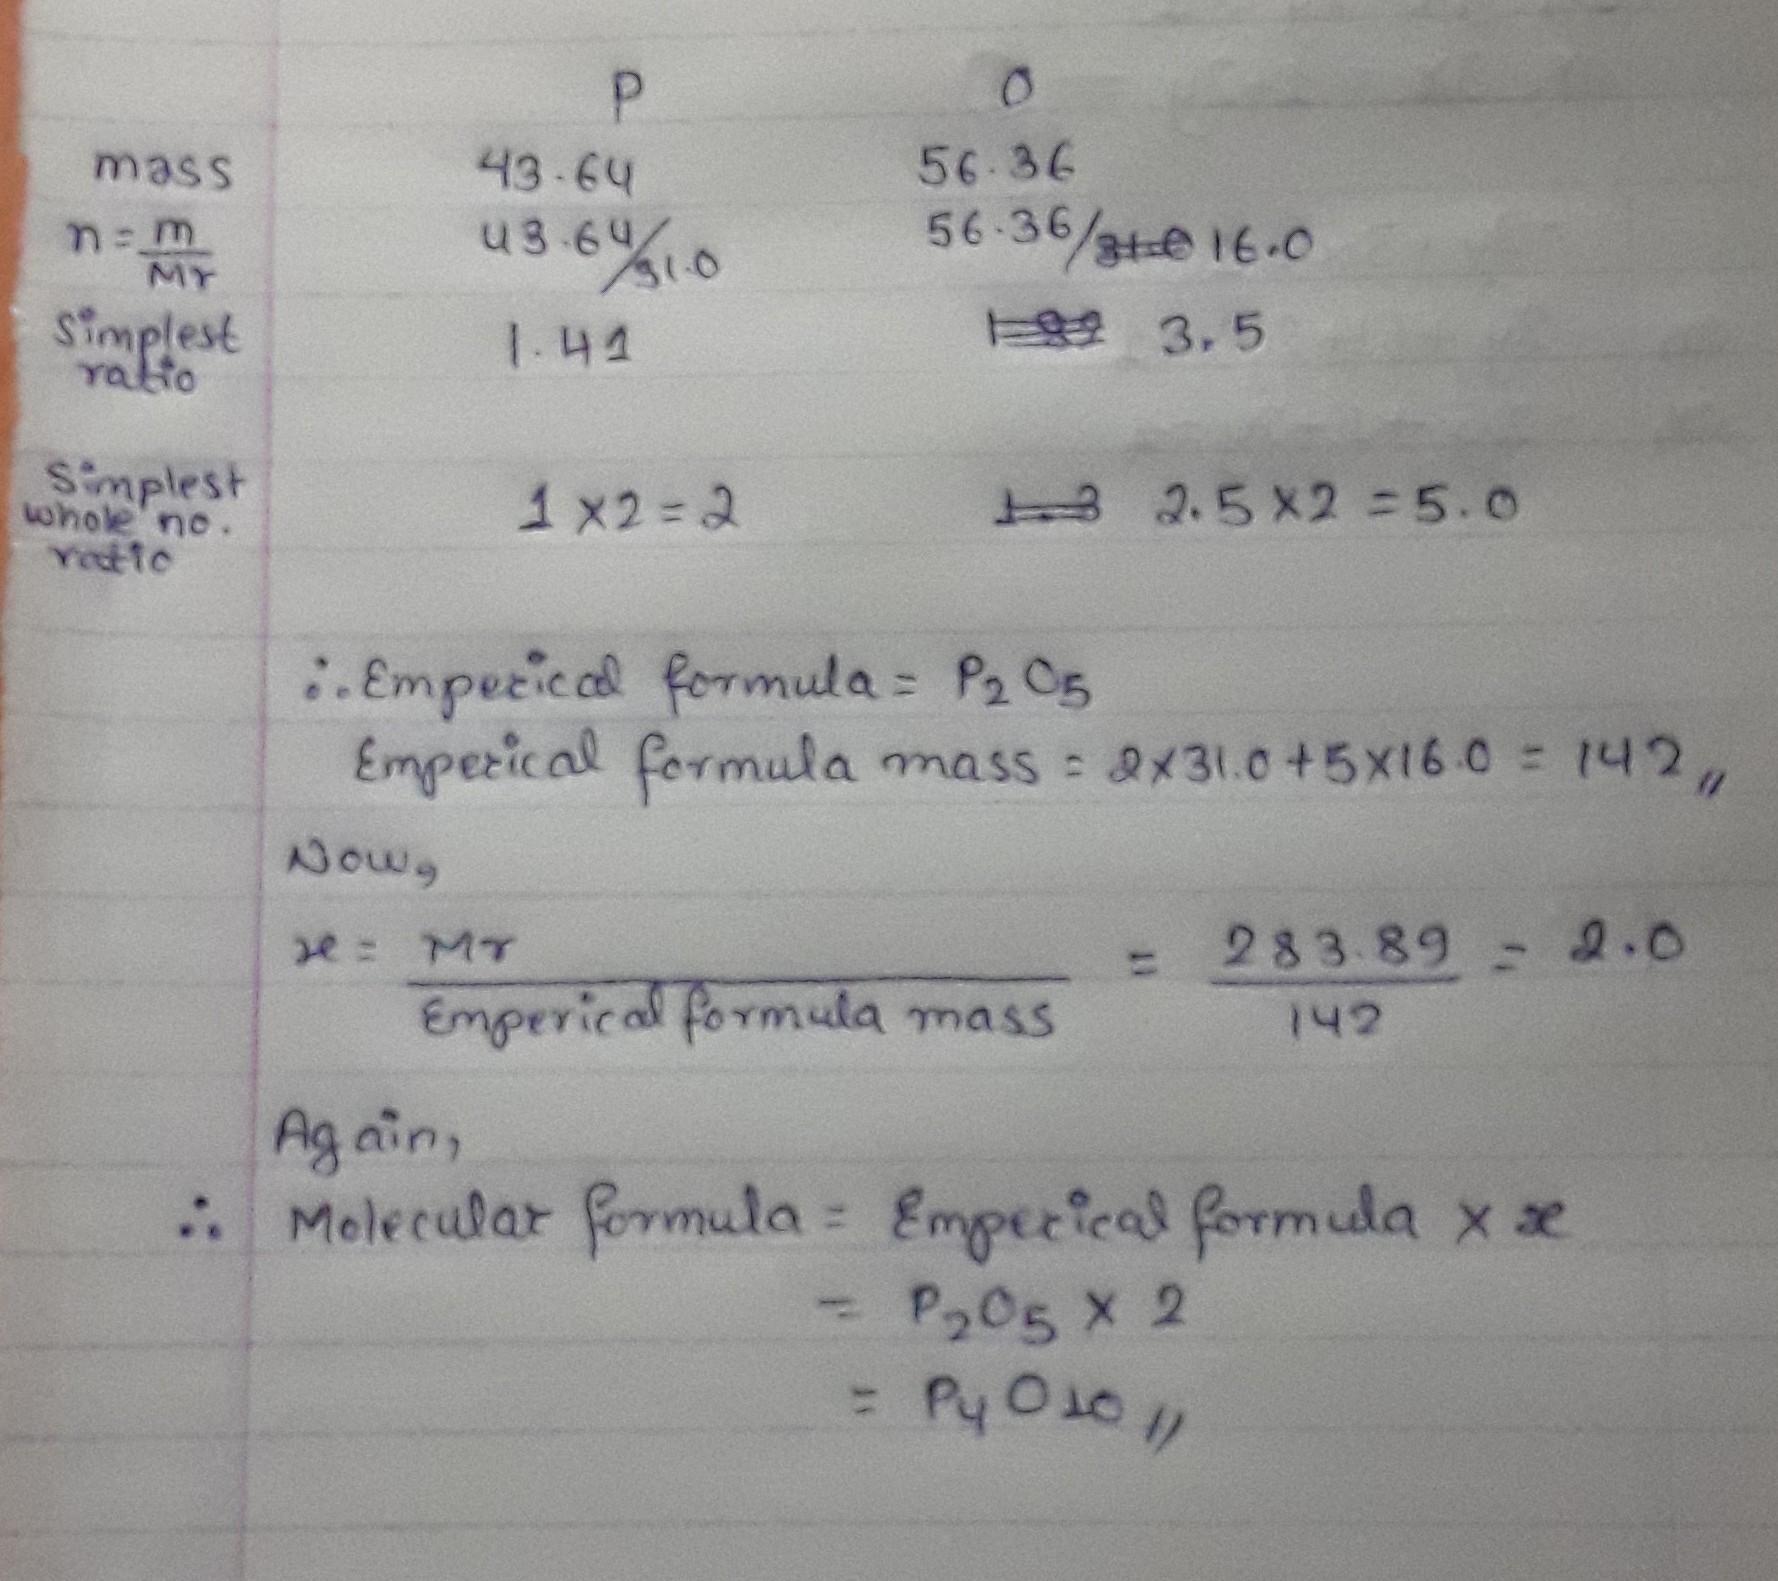 P O
mass 43.64 56.36
n = m/Mr 43.64/31.0 56.36/16.0
Simplest ratio 1.41 3.5
Simplest whole no. ratio 1 x 2 = 2 2.5 x 2 = 5.0
∴ Emperical formula = P2O5
Emperical formula mass = 2x31.0 + 5x16.0 = 142 //
Now,
x = Mr / Emperical formula mass = 283.89 / 142 = 2.0
Again,
∴ Molecular formula = Emperical formula x x
= P2O5 x 2
= P4O10 //